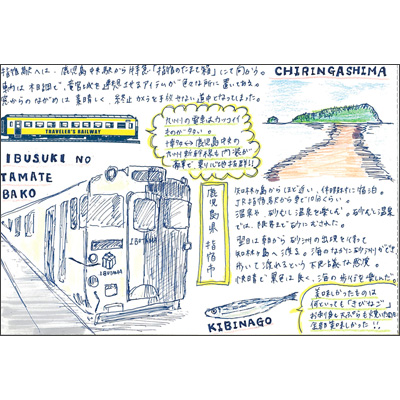 指宿駅へは、鹿児島中央駅から特急「指宿のたまて箱」にて向かう。
車内は木目調で、竜宮城を連想させるアイテムが色々な所に置いてある。
窓からのながめは素晴しく、終止カメラを手放せない道中となってしまった。
CHIRINGASHIMA
TRAVELER'S RAILWAY
九州の電車はカッコイイ
ものが多い。
博多↔鹿児島中央の
九州新幹線も内装が
豪華で乗り心地抜群!!
IBUSUKI NO
TAMATE
BAKO
鹿児島県 指宿市
知林ヶ島からほど近い、休暇村に宿泊。
JR指宿駅から車で10分くらい。
温泉や、砂むし温泉を楽しむ。砂むし温泉
では、
翌日は朝から砂州の出現を
知林ヶ島へ渡る。海のなかに砂州ができ
歩いて渡れるという不思議な感覚。
快晴で景色は良く、海の歩行を楽しんだ。
IBUTAMA
IBUSUKI
KIBINAGO
美味しかったものは
何といっても「きびなご」
お刺身も天ぷらも
全部美味しかった!!